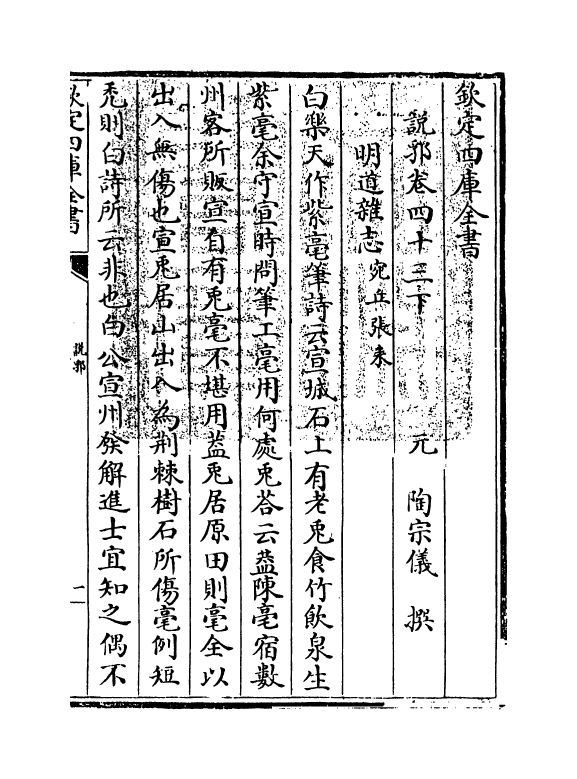 欽定四庫全書
說郛卷四十三下　元　陶宗儀　撰
明道雜志宛丘張耒
白樂天作紫毫筆詩云宣城石上有老兎食竹飲泉生
紫毫余守宣時問筆工毫用何處兎荅云葢陳亳宿數
州客所販宣自有兎毫不堪用葢兎居原田則毫全以
出入無傷也宣兎居山出入為荆棘樹石所傷毫例短
禿則白詩所云非也白公宣州發解進士宜知之偶不
欽定四庫全書
說郛
一